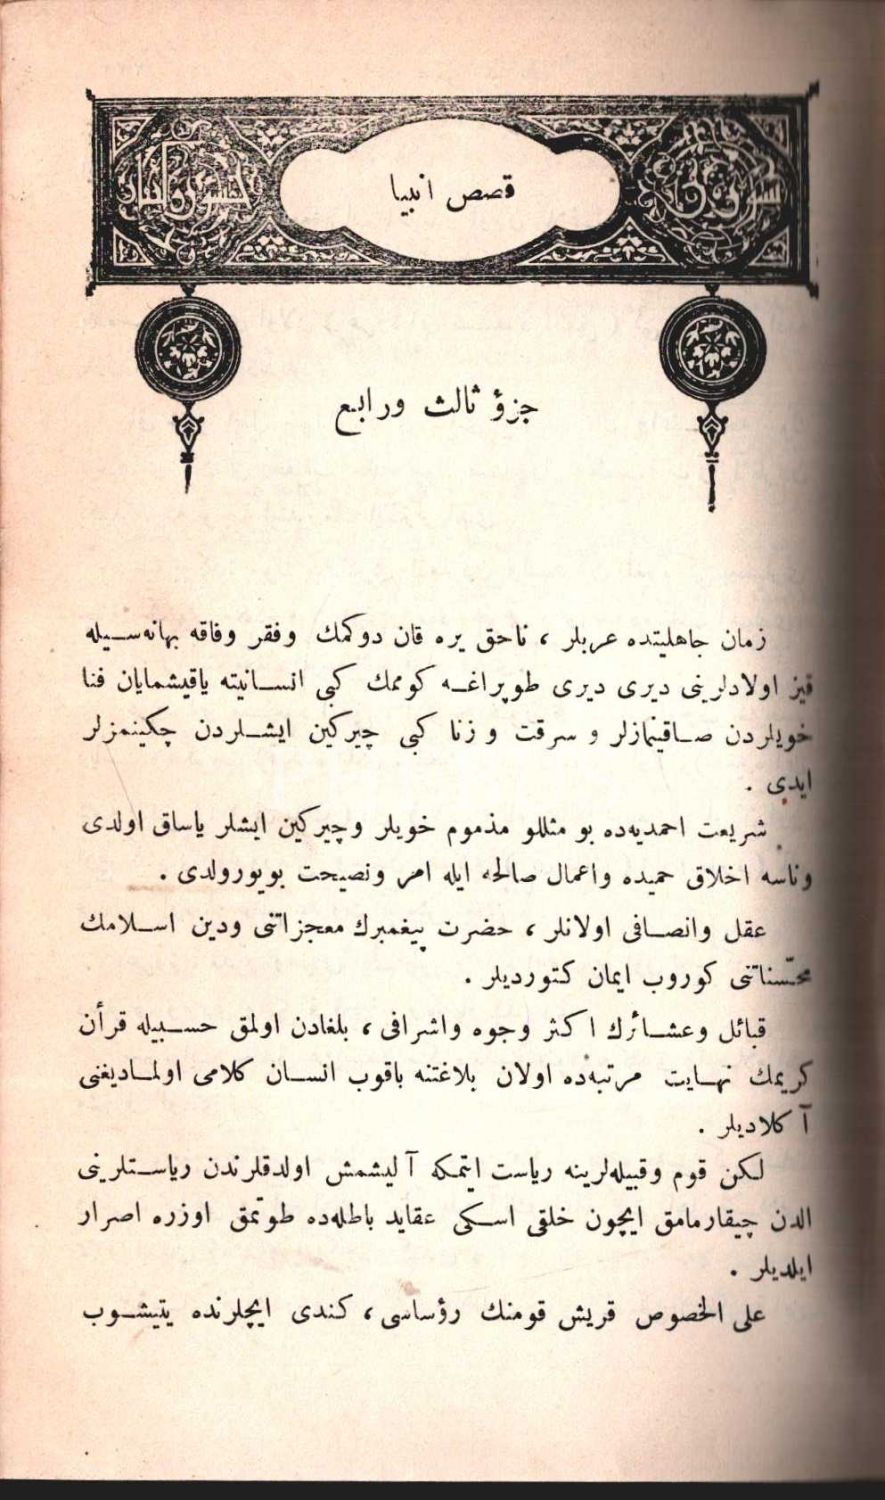 قصص انبيا
جزؤ ثالث ورابع
زمان جاهليتده عربلر ، ناحق يره قان دوكمك وفقر وفاقه بهانه‌سيله
قيز اولادلرينى ديرى ديرى طوپراغه كوممك كبى انسانيته ياقيشمايان فنا
خويلردن صاقينمازلر و سرقت و زنا كبى چيركين ايشلردن چكينمزلر
ايدى .
شريعت احمديه‌ده بو مثللو مذموم خويلر وچيركين ايشلر ياساق اولدى
وناسه اخلاق حميده واعمال صالحه ايله امر ونصيحت بويورولدى .
عقل وانصافى اولانلر ، حضرت پيغمبرك معجزاتنى ودين اسلامك
محسّناتنى كوروب ايمان كتورديلر .
قبائل وعشائرك اكثر وجوه واشرافى ، بلغادن اولمق حسبيله قرأن
كريمك نهايت مرتبه‌ده اولان بلاغتنه باقوب انسان كلامى اولماديغنى
آكلاديلر .
لكن قوم وقبيله‌لرينه رياست ايتمكه آليشمش اولدقلرندن رياستلرينى
الدن چيقارمامق ايچون خلقى اسكى عقايد باطله‌ده طوتمق اوزره اصرار
ايلديلر .
على الخصوص قريش قومنك رؤساسى ، كندى ايچلرنده يتيشوب